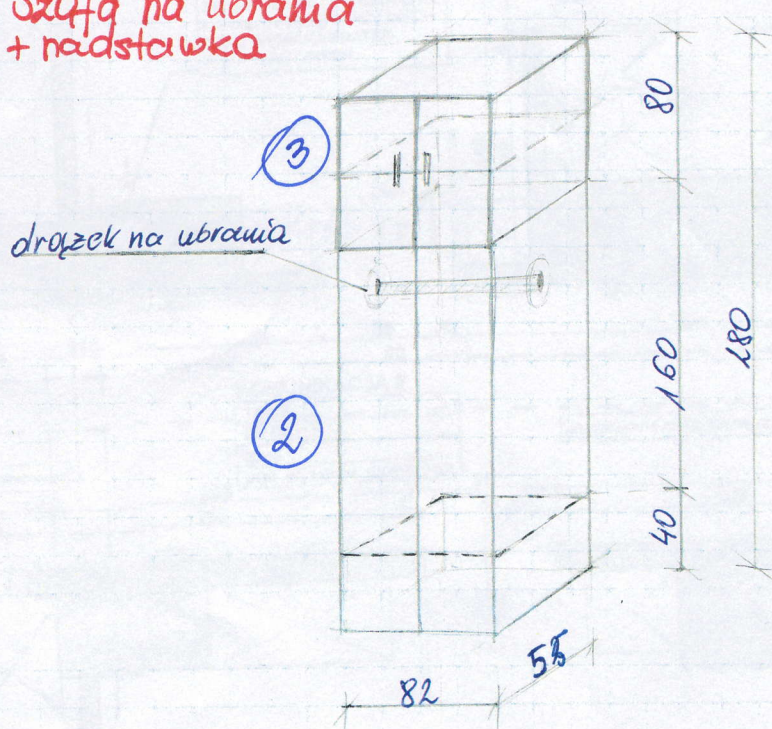 Szafa na ubrania
+ nadstawka
80
3
drążek na ubrania
160
280
2
40
55
82